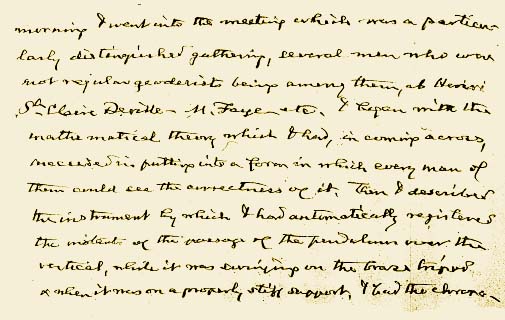 morning I went into the meeting which was a particu-
larly distinguished gathering, several men who were
not regular geodesists being among them, as Henri
Ste Claire Deville - M. Faye - etc. I began with the
mathematical theory which I had, in coming across,
succeeded in putting into a form in which every man of
them could see the correctness of it. Then I described
the instrument by which I had automatically registered
the instants of the passage of the pendulum over the
vertical, while it was swinging on the brass tripod
& when it was on a properly stiff support. I had the chrono-